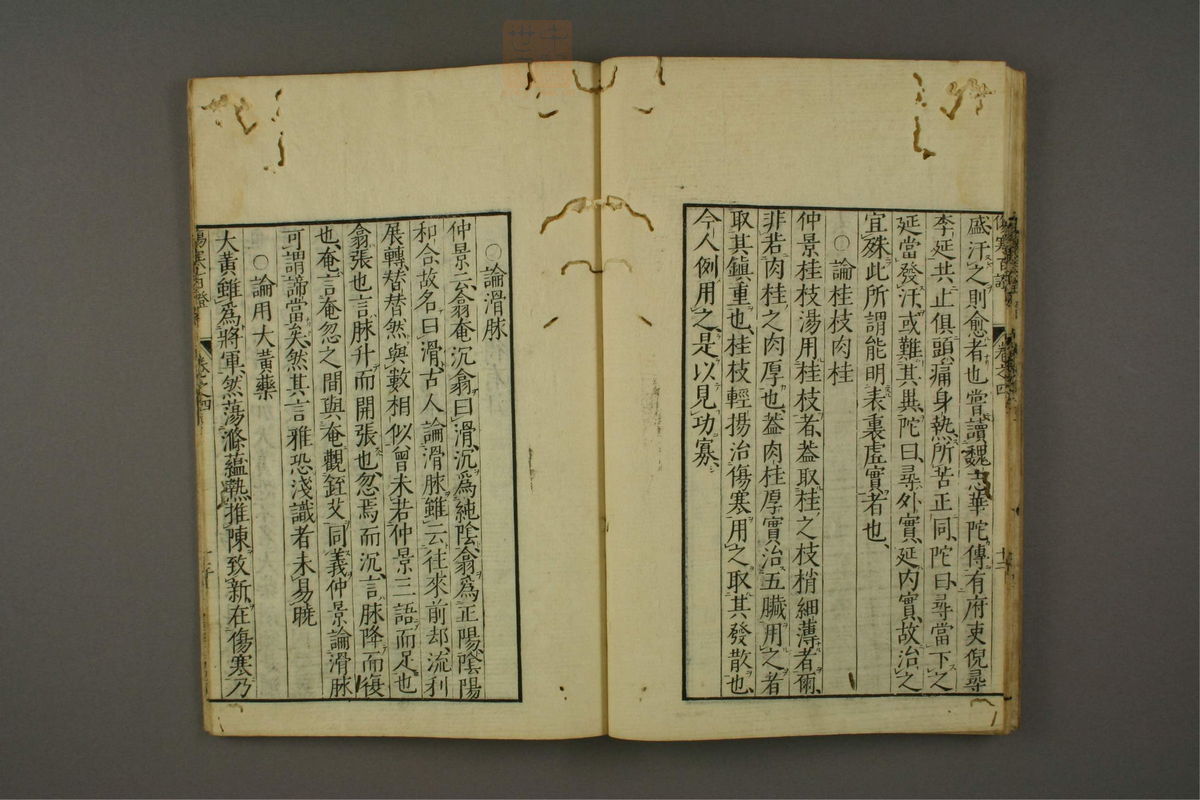 盛汗之則愈者也嘗讀魏志華陀傳有府吏倪尋
李延共止俱頭痛身熱所苦正同陀曰尋當下之
延當發汗或難其異陀曰尋外實延内實故治之
宜殊此所謂能明表裏虛實者也
○論桂枝肉桂
仲景桂枝湯用桂枝者葢取桂之枝梢細薄者爾
非若肉桂之肉厚也葢肉桂厚實治五臟用之者
取其鎮重也桂枝輕揚治傷寒用之取其發散也
今人例用之是以見功寡
○論滑脉
仲景云翕奄沉翕曰滑沉爲純陰翕爲正陽陰陽
和合故名曰滑古人論滑脉雖云往來前却流利
展轉替替然與數相似曾未若仲景三語而足也
翕張也言脉升而開張也忽焉而沉言脉降而復
也奄言奄忽之間與奄觀銍艾同義仲景論滑脉
可謂諦當矣然其言雅恐淺識者未易曉
○論用大黃藥
大黃雖爲將軍然蕩滌蘊熱推陳致新在傷寒乃
卷之四